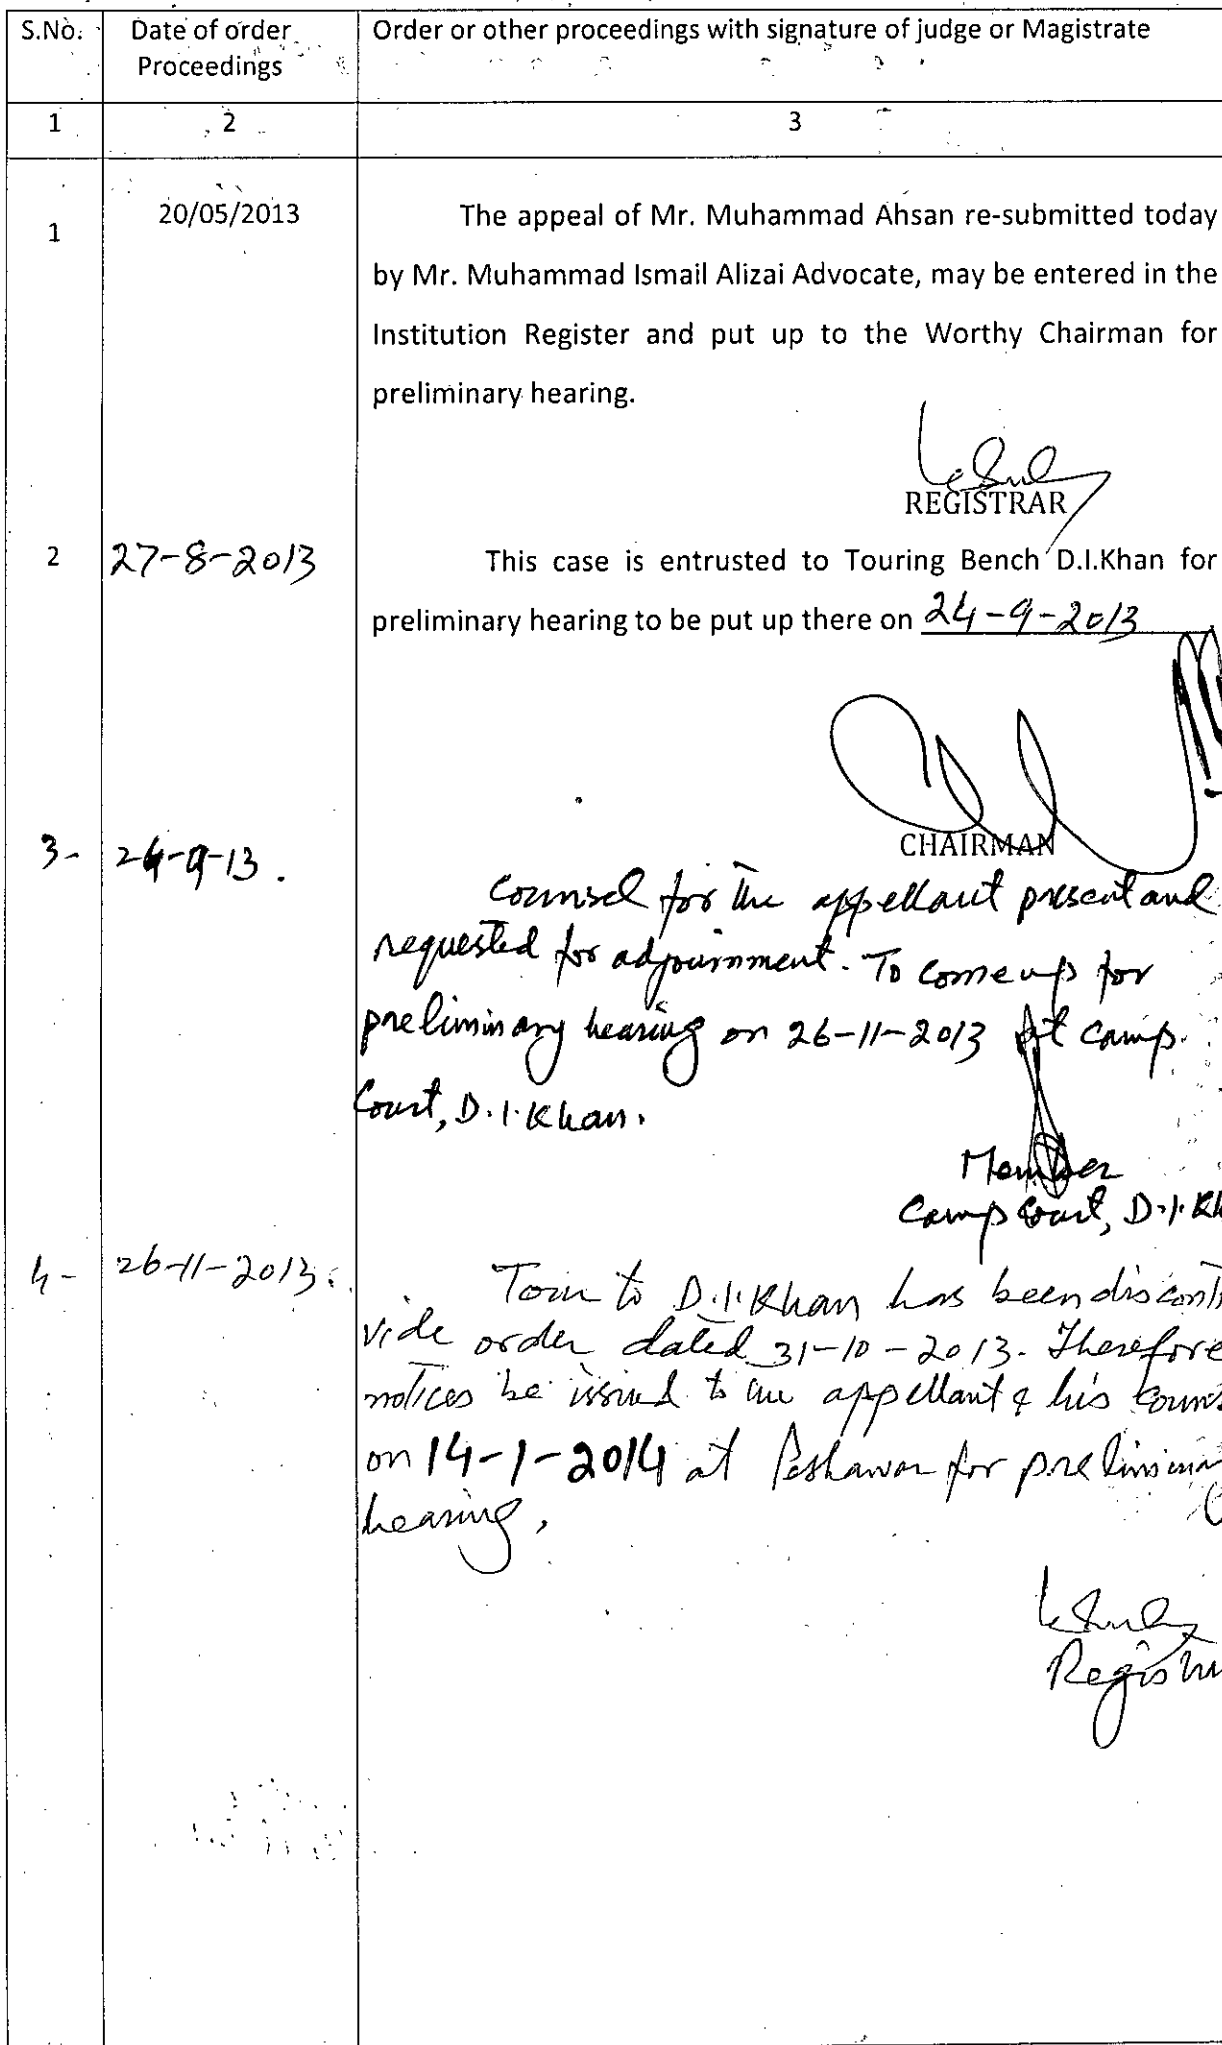 S.No. Date of order Order or other proceedings with signature of judge or Magistrate
Proceedings
1 2 3
1 20/05/2013 The appeal of Mr. Muhammad Ahsan re-submitted today
by Mr. Muhammad Ismail Alizai Advocate, may be entered in the
Institution Register and put up to the Worthy Chairman for
preliminary hearing.
REGISTRAR
2 27-8-2013 This case is entrusted to Touring Bench D.I.Khan for
preliminary hearing to be put up there on 24-9-2013
CHAIRMAN
3- 24-9-13.
Counsel for the appellant present and
requested for adjournment. To come up for
preliminary hearing on 26-11-2013 at camp
Court, D.I.Khan.
Member
Camp Court, D.I.Kh
4- 26-11-2013. Tour to D.I.Khan has been discont
vide order dated 31-10-2013. Therefore
notices be issued to the appellant & his couns
on 14-1-2014 at Peshawar for prelimina
hearing.
Registr